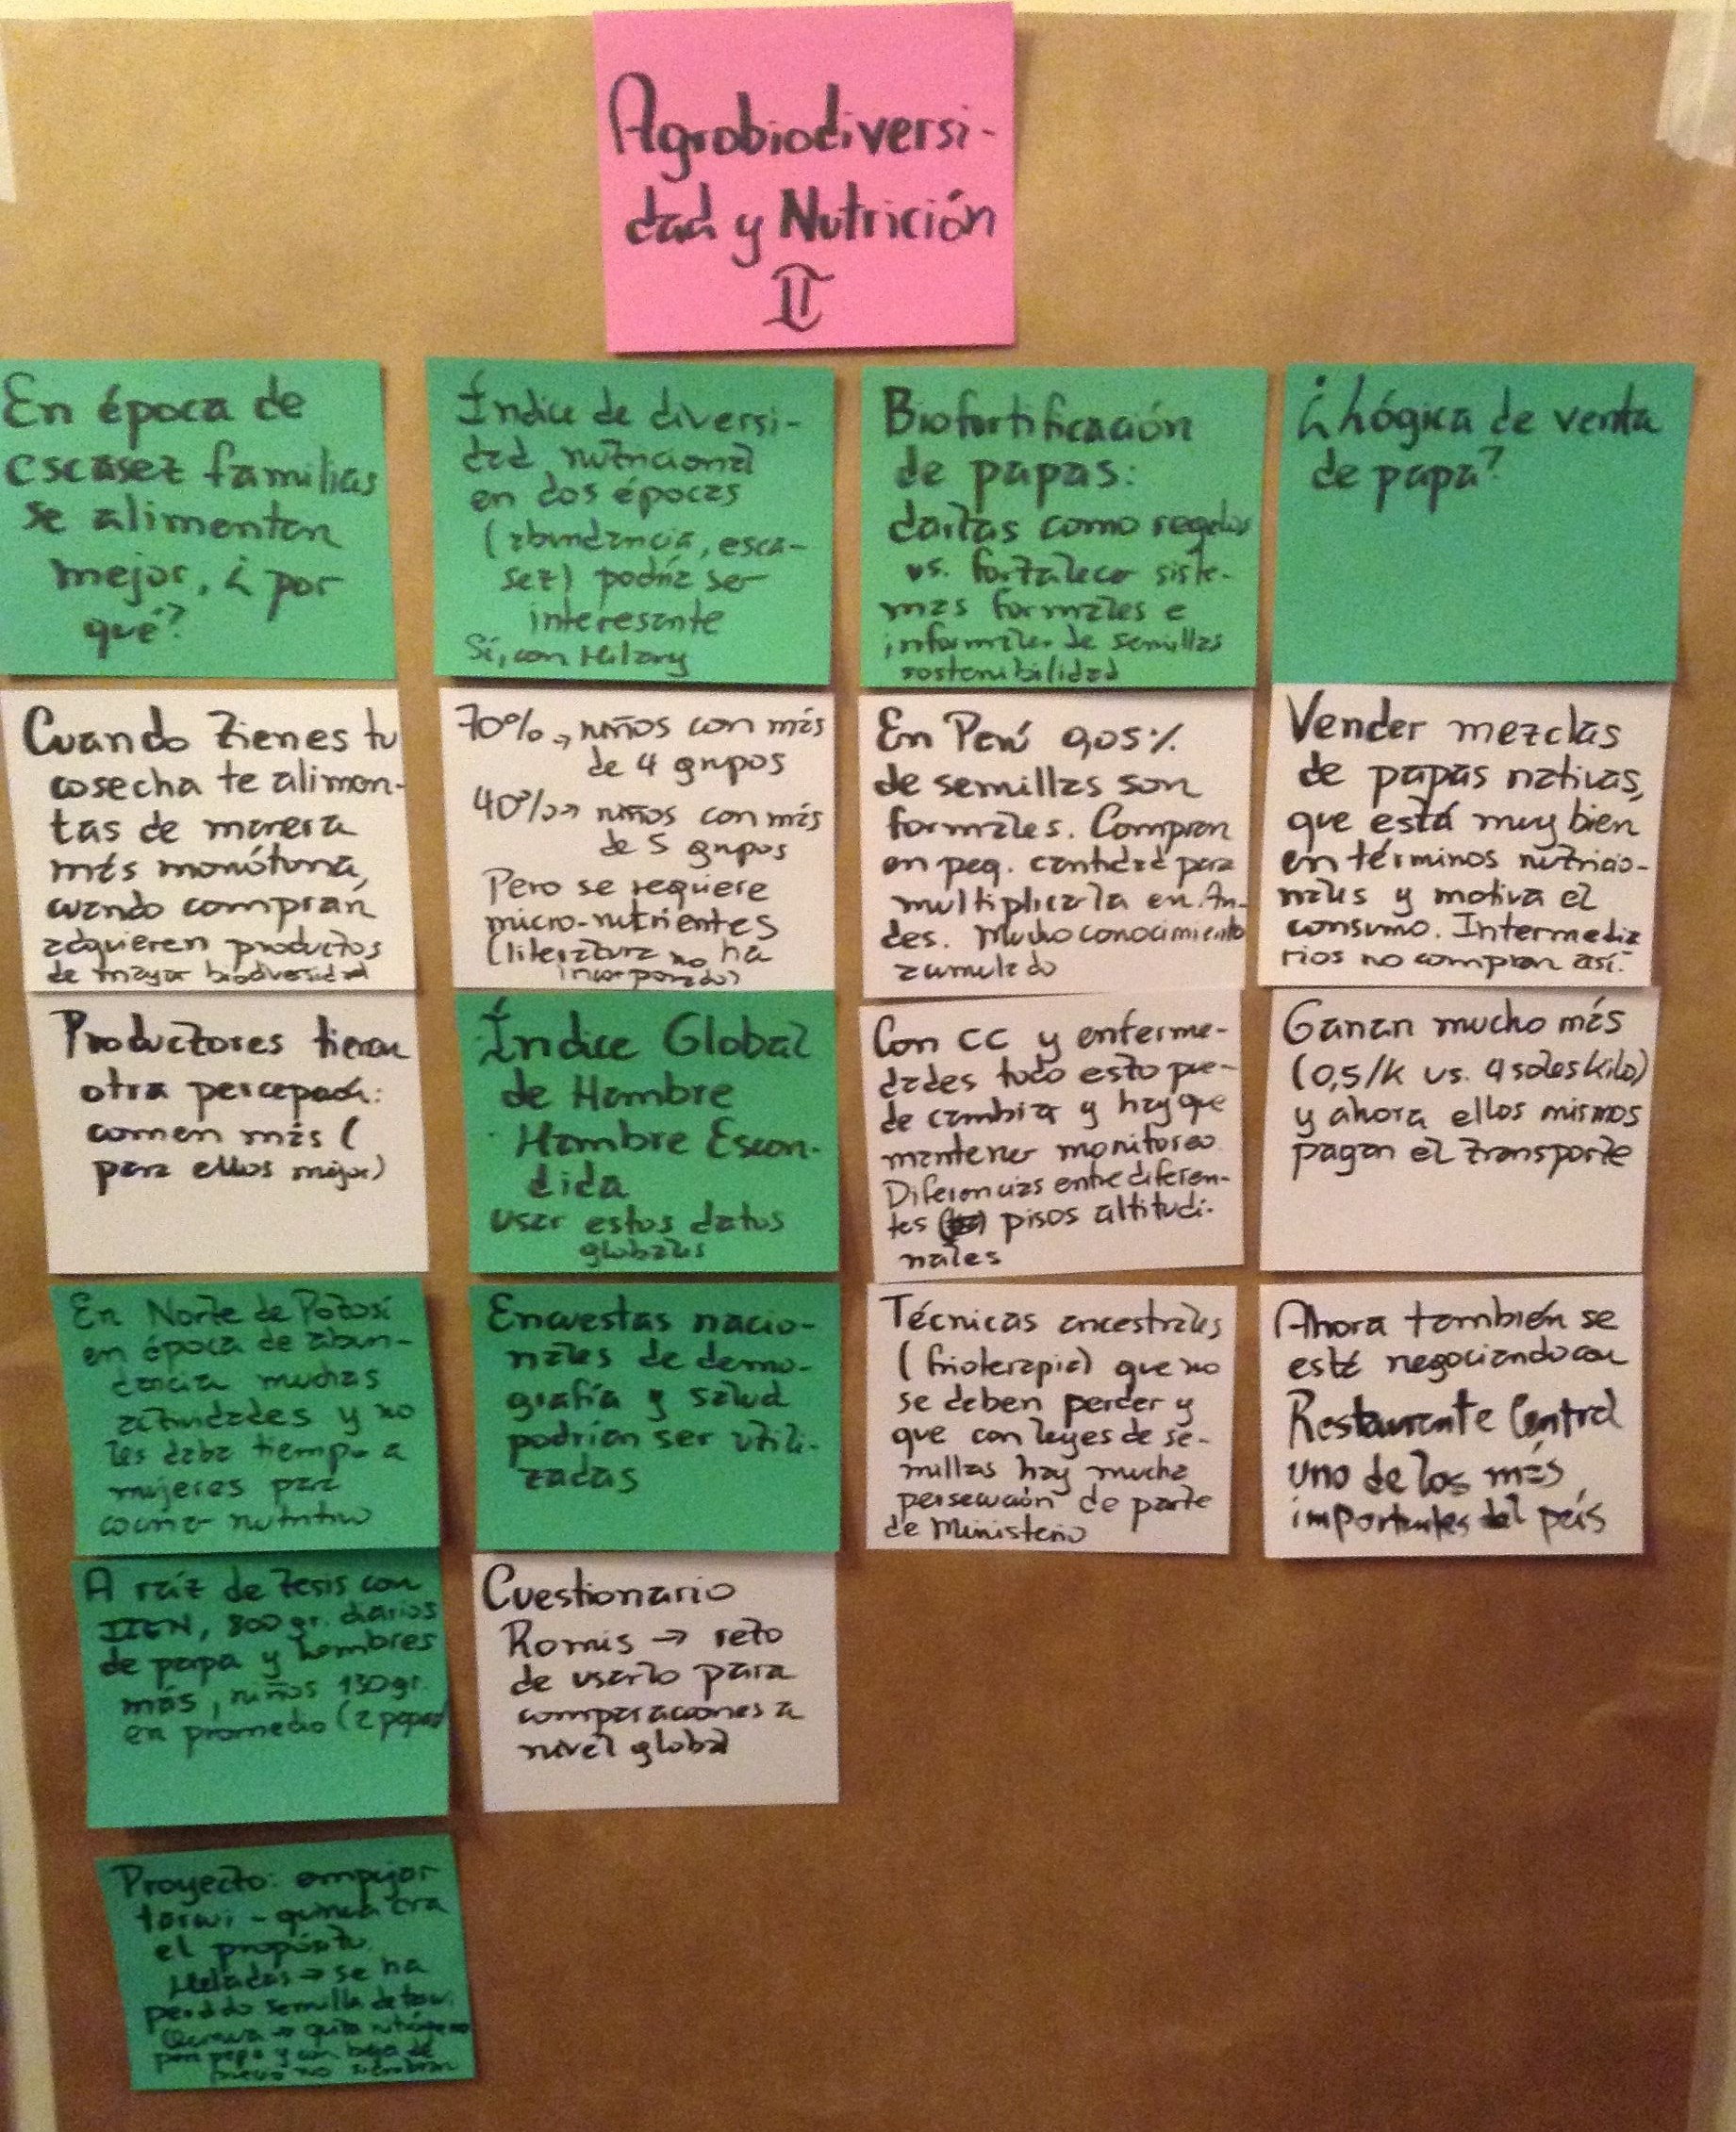 Agrobiodiversi-
dad y Nutrición
II
En época de
escasez familias
se alimentan
mejor, ¿por
qué?
Cuando tienes tu
cosecha te alimen-
tas de manera
más monótona,
cuando compran
adquieren productos
de mayor biodiversidad
Productores tienen
otra percepción:
comen más (
para ellos mejor)
En Norte de Potosí
en época de abun-
dancia muchas
actividades y no
les daba tiempo a
mujeres para
cocinar nutritivo
A raíz de tesis con
800 gr. diarios
de papa y hombres
más, niños 130 gr.
en promedio (2 papas)
Proyecto: empujar
tarwi - quinua era
el propósito
Heladas → se ha
perdido semilla de tarwi
Quinua → quita nitrógeno
para papa y con baja de
no siembran
Índice de diversi-
dad nutricional
en dos épocas
(abundancia, esca-
sez) podría ser
interesante
Sí, con Hilary
70% → niños con más
de 4 grupos
40% → niños con más
de 5 grupos
Pero se requiere
micro-nutrientes
(literatura no ha
incorporado)
Índice Global
de Hambre
Hambre Escon-
dida
usar estos datos
globales
Encuestas nacio-
nales de demo-
grafía y salud
podrían ser utili-
zadas
Cuestionario
Romis → reto
de usarlo para
comparaciones a
nivel global
Biofortificación
de papas:
darlas como regalos
vs. fortalecer siste-
mas formales e
informales de semillas
sostenibilidad
En Perú 0,05%
de semillas son
formales. Compran
en peq. cantidad para
multiplicarla en An-
des. Mucho conocimiento
acumulado
Con CC y enferme-
dades todo esto pue-
de cambiar y hay que
mantener monitoreo
Diferencias entre diferen-
tes pisos altitudi-
nales
Técnicas ancestrales
(frioterapia) que no
se deben perder y
que con leyes de se-
millas hay mucha
persecución de parte
de Ministerio
¿Lógica de venta
de papa?
Vender mezclas
de papas nativas,
que está muy bien
en términos nutricio-
nales y motiva el
consumo. Intermedia
rios no compran así.
Ganan mucho más
(0,5/k vs. 4 soles kilo)
y ahora ellos mismos
pagan el transporte
Ahora también se
está negociando con
Restaurante Central
uno de los más
importantes del país